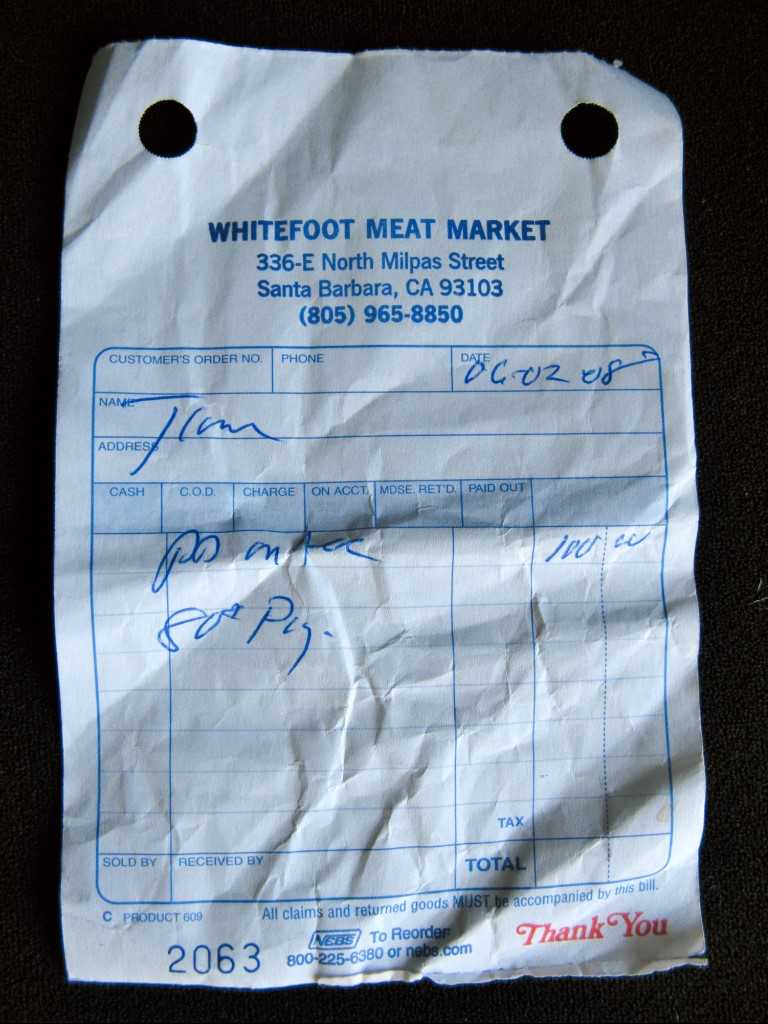 WHITEFOOT MEAT MARKET
336-E North Milpas Street
Santa Barbara, CA 93103
(805) 965-8850
CUSTOMER'S ORDER NO. PHONE DATE 06-02-08
NAME
ADDRESS
CASH C.O.D. CHARGE ON ACCT. MDSE. RET'D. PAID OUT
100 00
80# Pig.
TAX
SOLD BY RECEIVED BY TOTAL
C PRODUCT 609 All claims and returned goods MUST be accompanied by this bill.
2063 NEBS To Reorder: Thank You
800-225-6380 or nebs.com